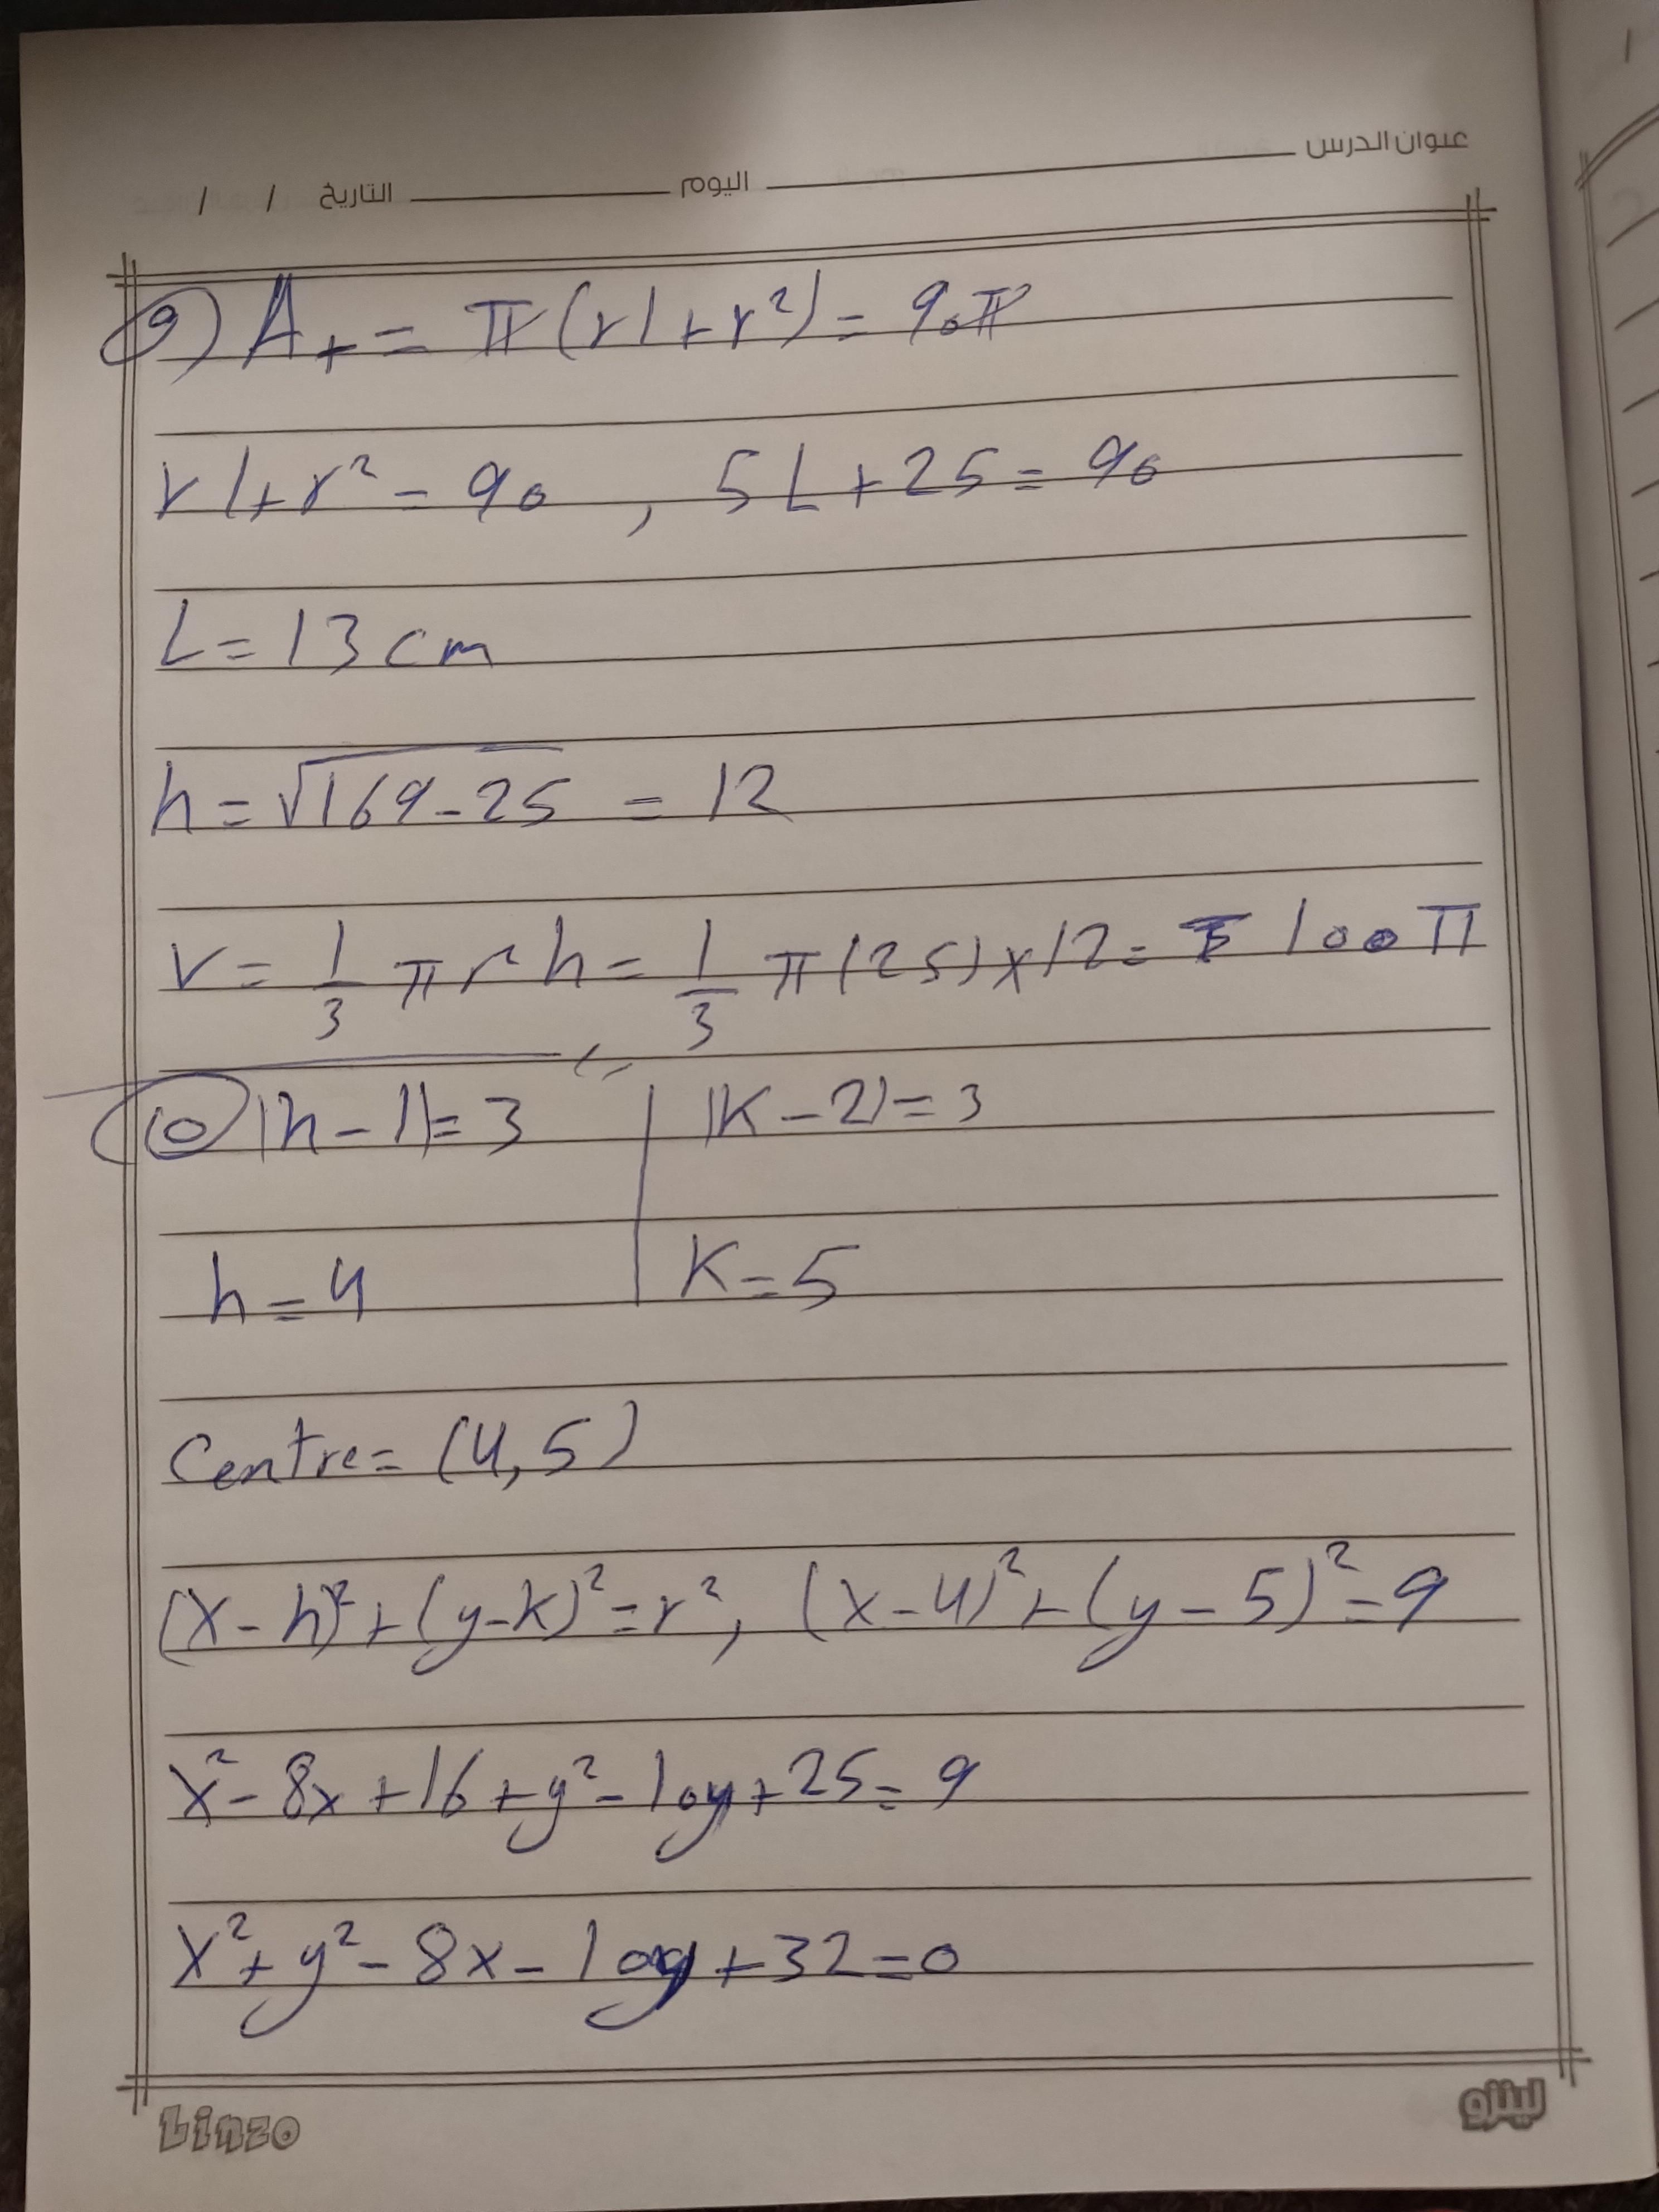 عنوان الدرس اليوم التاريخ / /
9) A_t = π(rl+r²) = 90π
rl+r² = 90 , 5L+25 = 90
L = 13 cm
h = √169-25 = 12
V = 1/3 π r² h = 1/3 π (25)×12 = 100π
10) |h-1| = 3 | |K-2| = 3
h = 4 | K = 5
Centre = (4,5)
(x-h)²+(y-k)² = r², (x-4)²+(y-5)² = 9
x²-8x+16+y²-10y+25 = 9
x²+y²-8x-10y+32 = 0
Linzo لينزو